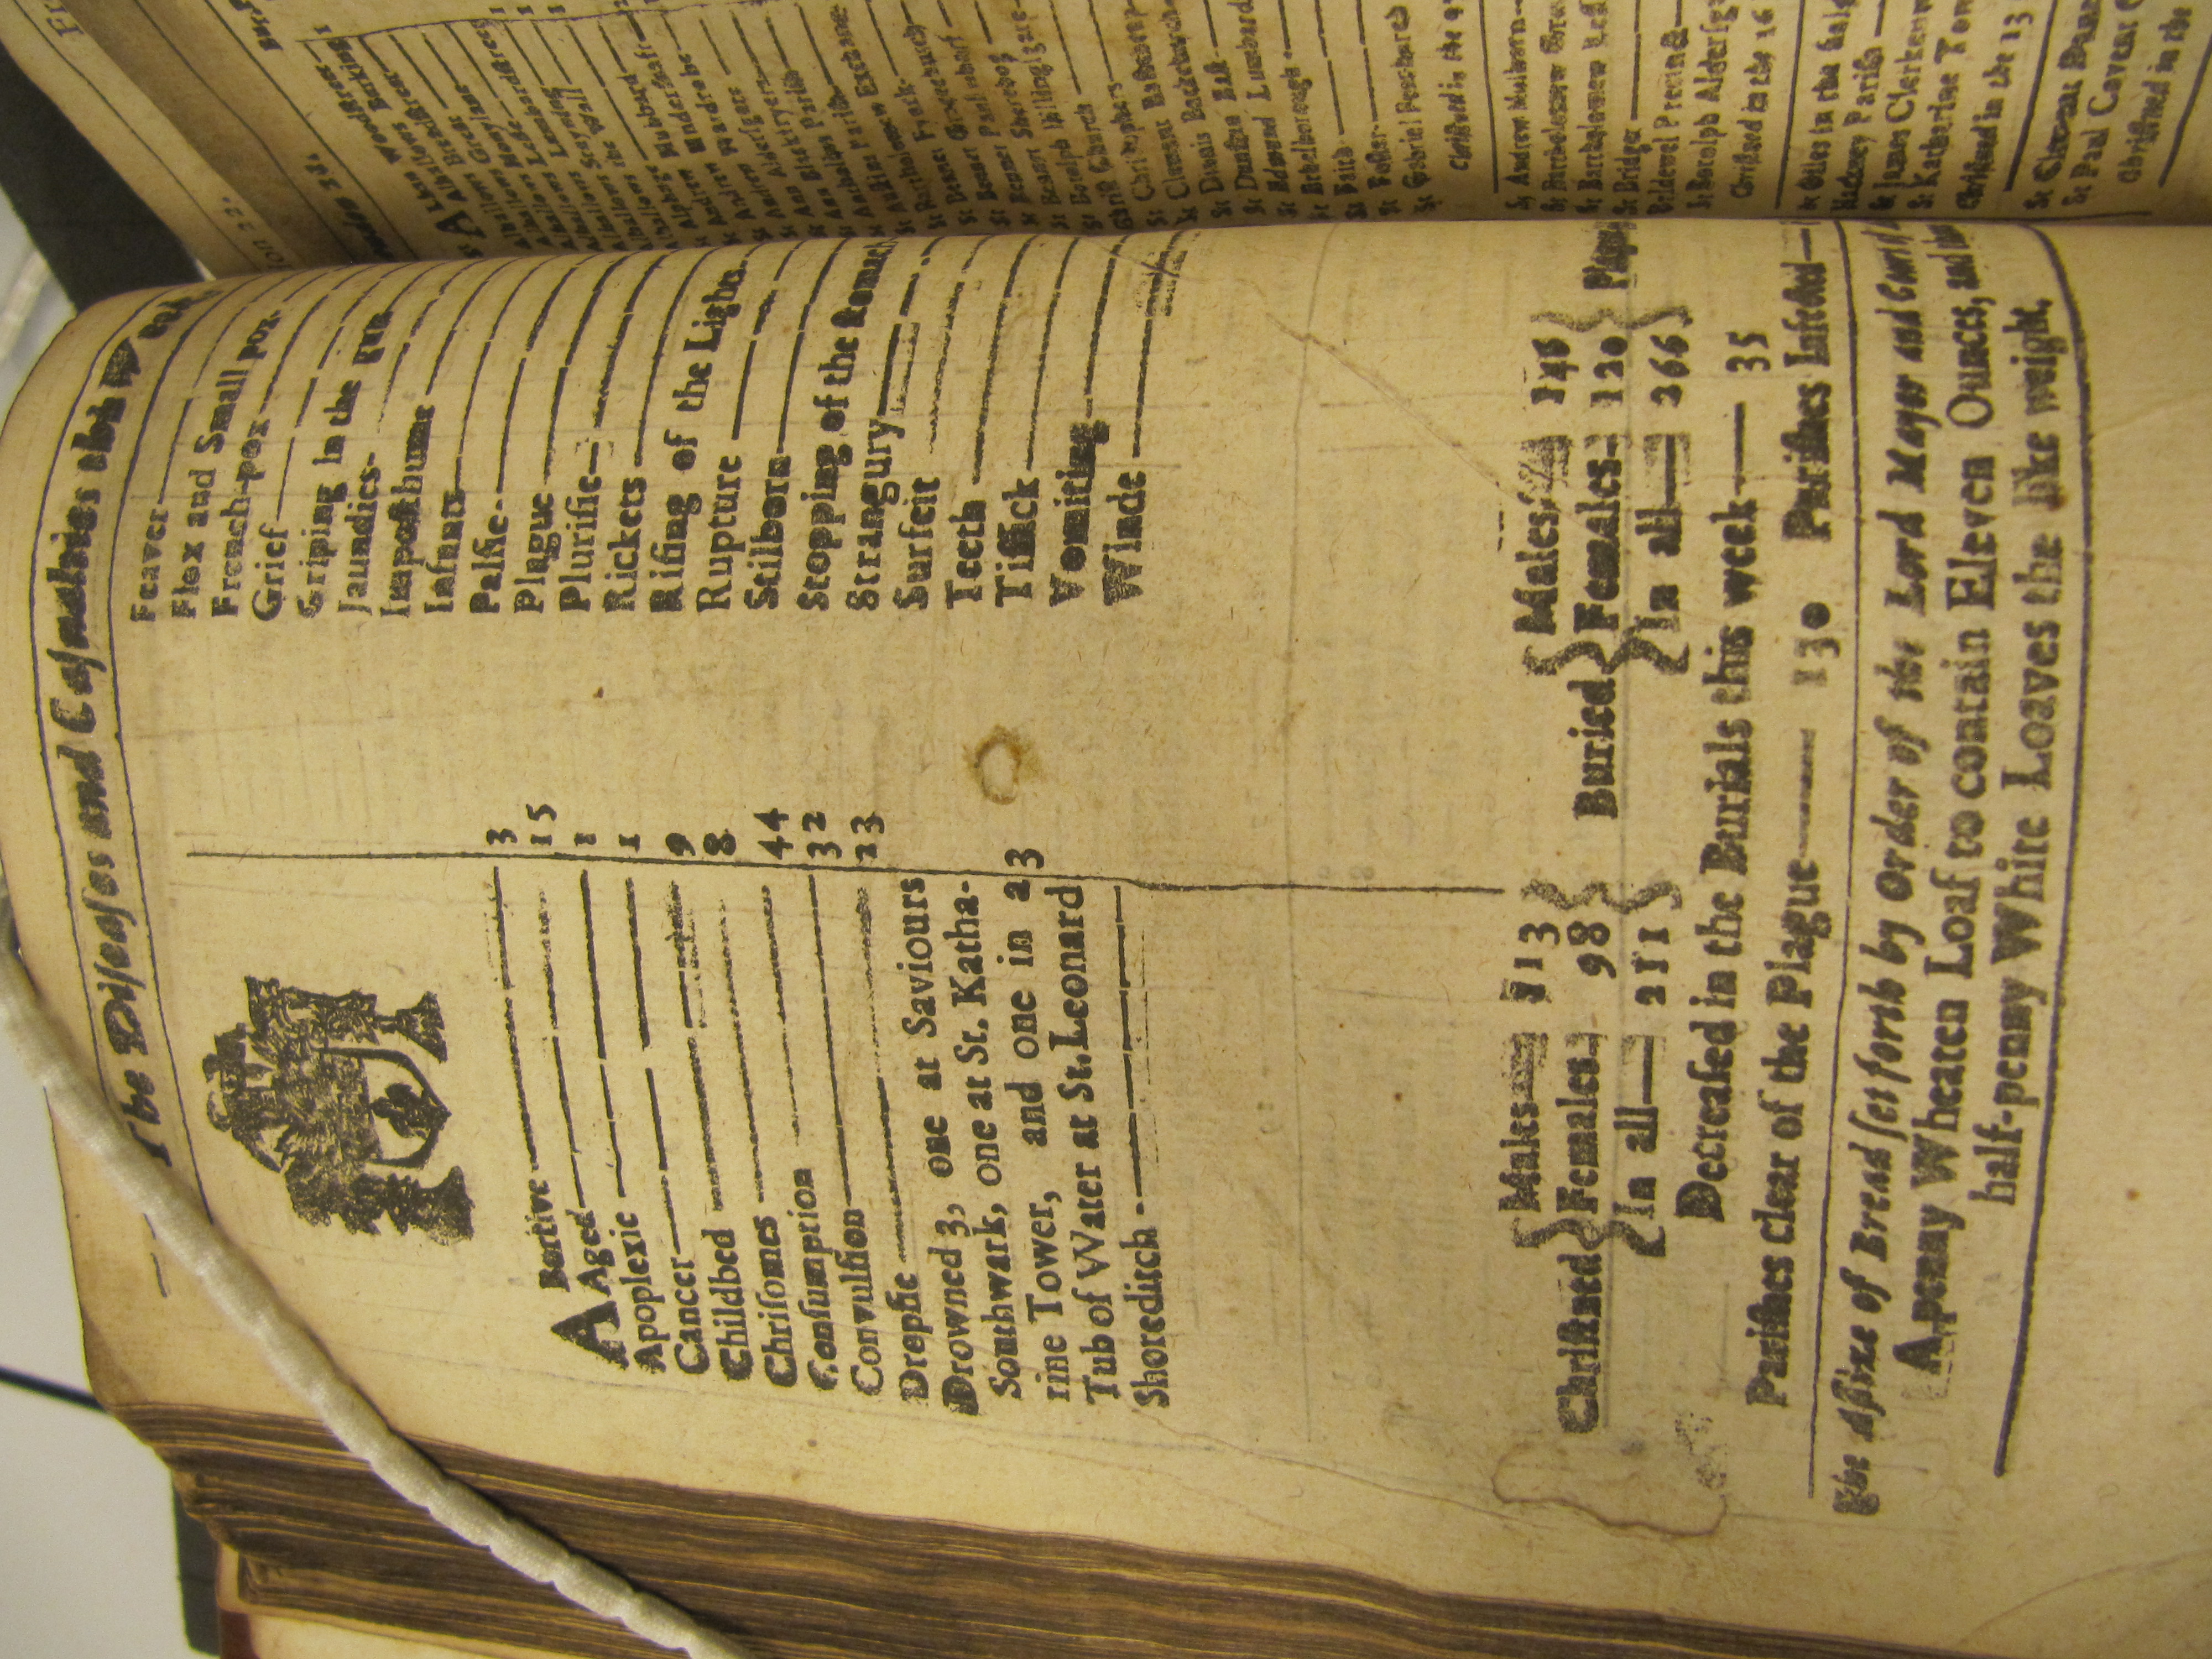 The Diseases and Casualties this
Abortive 3
Aged 15
Apoplexie 1
Cancer 1
Childbed 9
Chrisomes 8
Consumption 44
Convulsion 32
Dropsie 23
Drowned 3, one at Saviours
Southwark, one at St. Katha-
rine Tower, and one in a 3
Tub of Water at St. Leonard
Shoreditch
Feaver
Flox and Small pox
French-pox
Grief
Griping in the guts
Jaundies
Imposthume
Infants
Palsie
Plague
Plurisie
Rickets
Rising of the Lights
Rupture
Stilborn
Stopping of the stomach
Strangury
Surfeit
Teeth
Tissick
Vomiting
Winde
Christned Males 113
Females 98
In all 211
Buried Males 146
Females 120
In all 266
Plague
Decreased in the Burials this week 35
Parishes clear of the Plague 130 Parishes Infected
The Assize of Bread set forth by Order of the Lord Mayor and
A penny Wheaten Loaf to contain Eleven Ounces, and
half-penny White Loaves the like weight.
St Alban Woodstreet
Alhallows Barking
Alhallows Breadstreet
Alhallows Great
Alhallows Honylane
Alhallows Lesse
Alhallows Lumbardstreet
Alhallows Staining
Alhallows the Wall
St Alphage
St Andrew Hubbard
St Andrew Undershaft
St Andrew Wardrobe
St Ann Aldersgate
St Ann Blackfryers
St Antholins Parish
St Austins Parish
St Bartholomew Exchange
St Bennet Fynck
St Bennet Gracechurch
St Bennet Paulswharf
St Bennet Sherehog
St Botolph Billingsgate
Christ Church
St Christophers
St Clement Eastcheap
St Dionis Backchurch
St Dunstans East
St Edmund Lumbard
St Ethelborough
St Faith
St Foster
St Gabriel Fenchurch
Christned in the 97
St Andrew Holborn
St Bartholomew Great
St Bartholomew Less
St Bridget
Bridewel Precinct
St Botolph Aldersga
Christned in the 16
St Giles in the field
Hackney Parish
St James Clerkenw
St Katharine Tow
Christned in the 13
St Clement Dane
St Paul Covent G
Christned in the